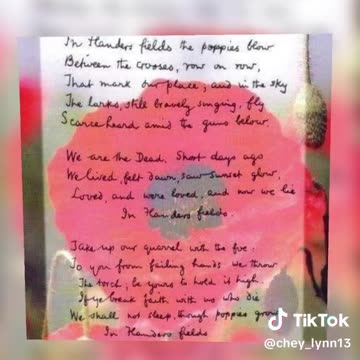 In Flanders fields the poppies blow
Between the crosses, row on row,
That mark our place; and in the sky
The larks, still bravely singing, fly
Scarce heard amid the guns below.
We are the Dead. Short days ago
We lived, felt dawn, saw sunset glow,
Loved, and were loved, and now we lie
In Flanders fields.
Take up our quarrel with the foe:
To you from failing hands we throw
The torch; be yours to hold it high.
If ye break faith with us who die
We shall not sleep, though poppies grow
In Flanders fields
TikTok
@chey_lynn13